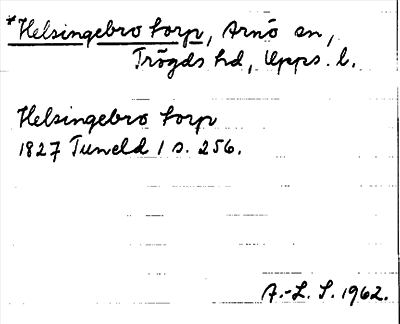 *Helsingebro torp, Arnö sn,
Trögds hd, Upps. l.
Helsingebro torp
1827 Tuneld 1 s. 256.
A.-L. S. 1962.